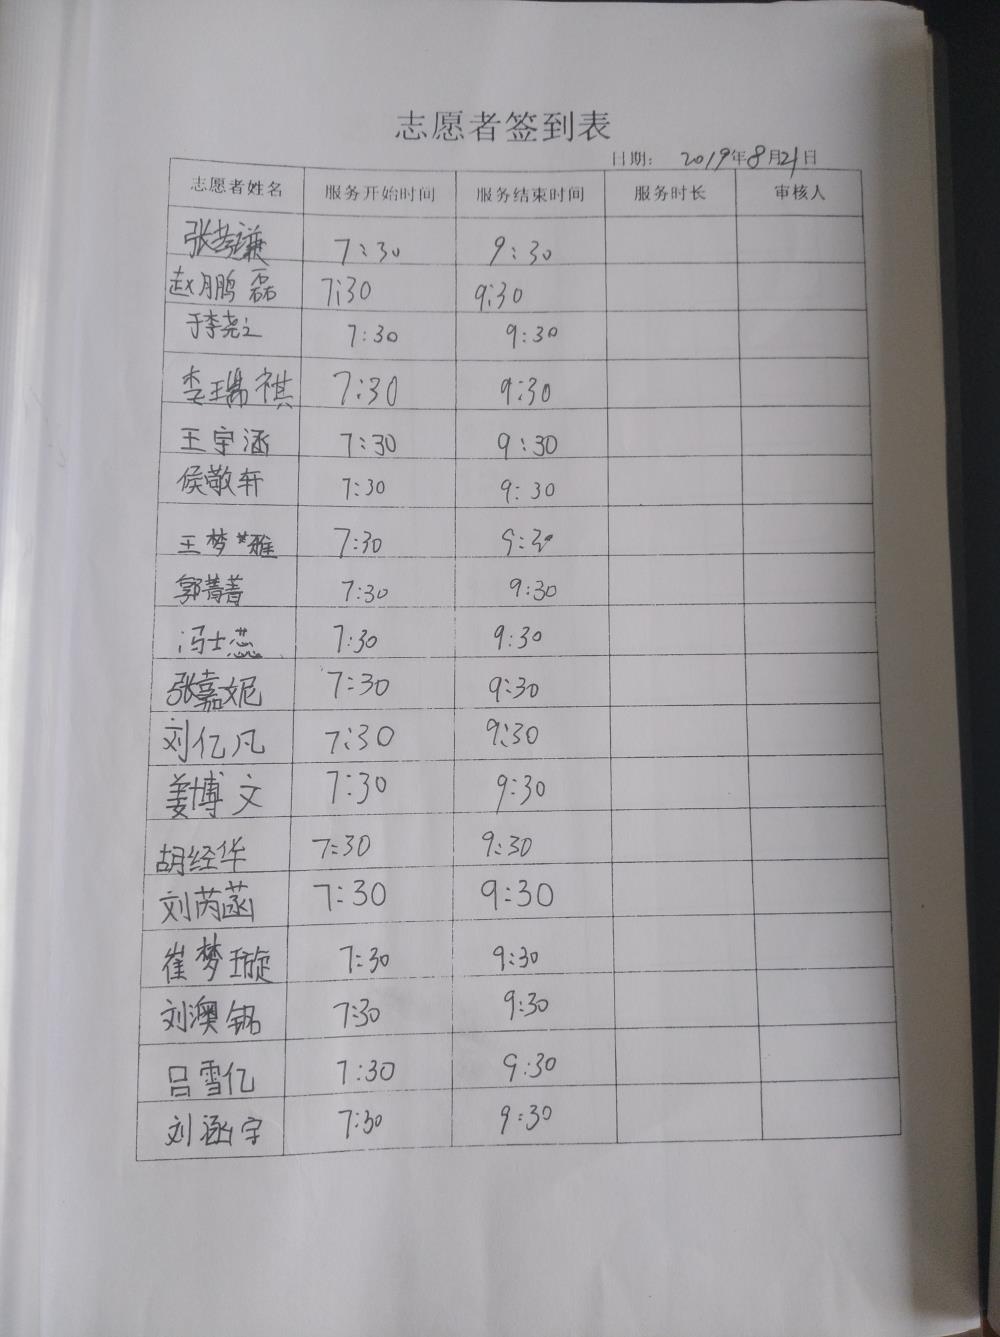 志愿者签到表
日期: 2019年8月21日
志愿者姓名 服务开始时间 服务结束时间 服务时长 审核人
张若谦 7:30 9:30
赵鹏磊 7:30 9:30
于李尧之 7:30 9:30
李瑞祺 7:30 9:30
王宇涵 7:30 9:30
侯敬轩 7:30 9:30
王梦雅 7:30 9:30
郭菁菁 7:30 9:30
冯士蕊 7:30 9:30
张嘉妮 7:30 9:30
刘亿凡 7:30 9:30
姜博文 7:30 9:30
胡经华 7:30 9:30
刘芮菡 7:30 9:30
崔梦璇 7:30 9:30
刘澳铭 7:30 9:30
吕雪亿 7:30 9:30
刘涵宇 7:30 9:30